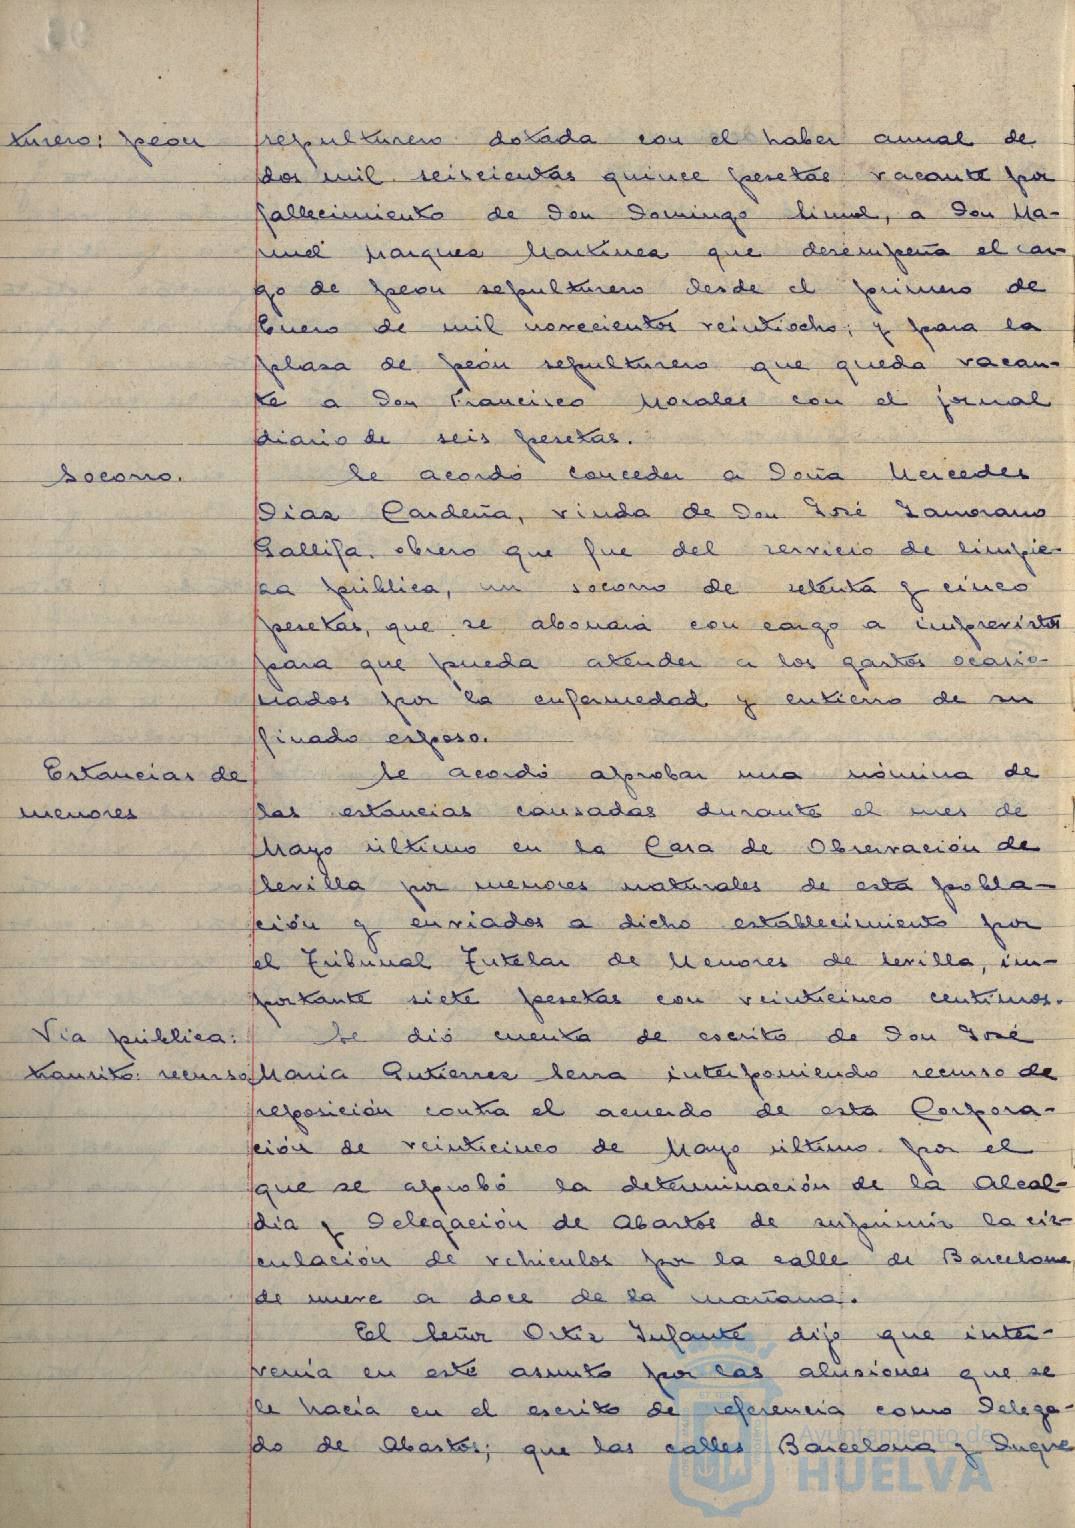 turero: peon
sepulturero dotada con el haber anual de
dos mil seiscientas quince pesetas vacante por
fallecimiento de Don Domingo Simol, a Don Ma-
nuel Marquez Martinez que desempeña el car-
go de peon sepulturero desde el primero de
Enero de mil novecientos veintiocho; y para la
plaza de peón sepulturero que queda vacan-
te a Don Francisco Morales con el jornal
diario de seis pesetas.
Socorro.
Se acordó conceder a Doña Mercedes
Diaz Cardeña, viuda de Don José Zamorano
Gallifa, obrero que fue del servicio de limpie-
za pública, un socorro de setenta y cinco
pesetas, que se abonará con cargo a imprevistos
para que pueda atender a los gastos ocasio-
nados por la enfermedad y entierro de su
finado esposo.
Estancias de
menores
Se acordó aprobar una nómina de
las estancias causadas durante el mes de
Mayo último en la Casa de Observación de
Sevilla por menores naturales de esta pobla-
ción y enviados a dicho establecimiento por
el Tribunal Tutelar de Menores de Sevilla, im-
portante siete pesetas con veinticinco centimos.
Via pública:
transito: recurso
Se dió cuenta de escrito de Don José
Maria Gutierrez Serra interponiendo recurso de
reposición contra el acuerdo de esta Corpora-
ción de veinticinco de Mayo último por el
que se aprobó la determinación de la Alcal-
dia y Delegación de Abastos de suprimir la cir-
culación de vehiculos por la calle de Barcelona
de nueve a doce de la mañana.
El Señor Ortiz Infante dijo que inter-
venia en este asunto por las alusiones que se
le hacia en el escrito de referencia como Delega-
do de Abastos; que las calles Barcelona y Duque
Ayuntamiento de
HUELVA